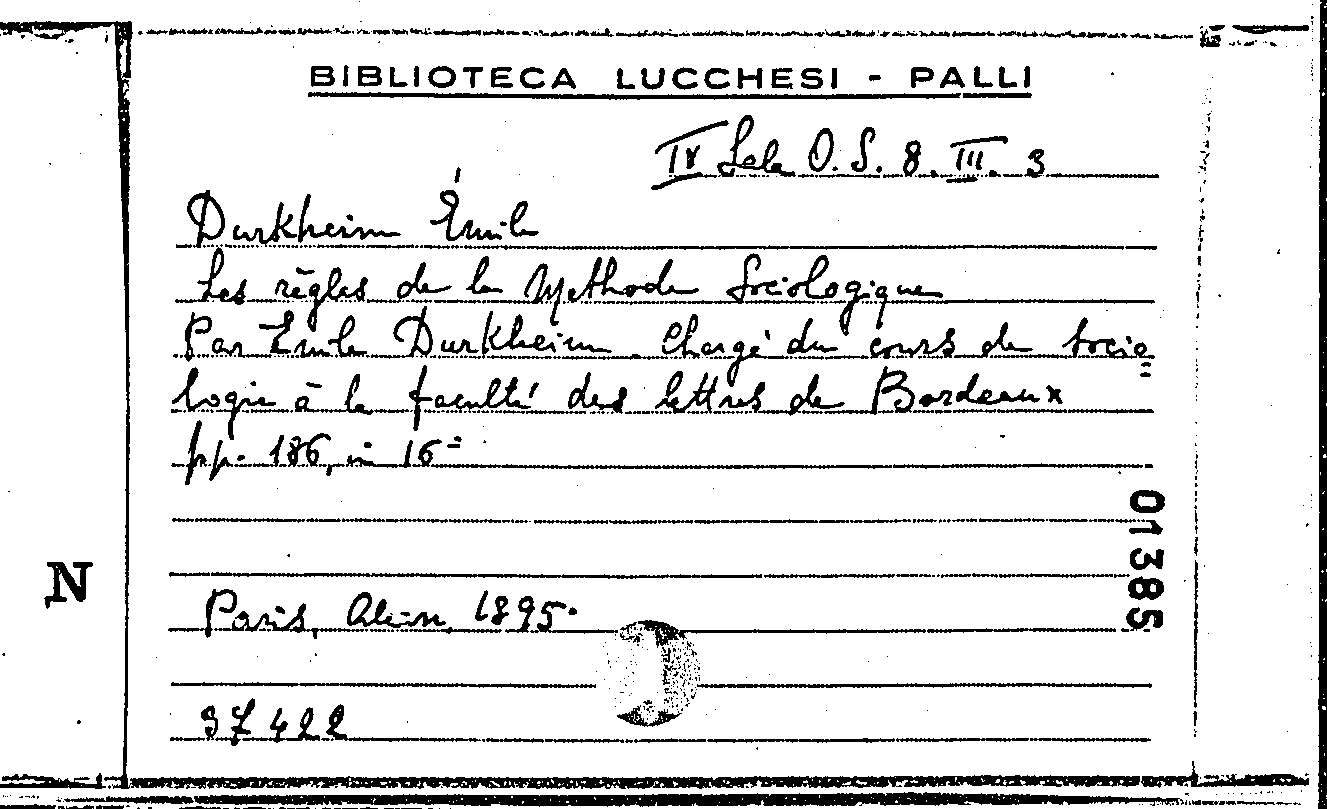 BIBLIOTECA LUCCHESI - PALLI
IV Sala O. S. 8. III. 3
Durkheim Émile
Les règles de la Methode Sociologique
Par Émile Durkheim. Chargé du cours de Socio=
logie à la faculté des lettres de Bordeaux
pp. 186, in 16=
01385
N
Paris, Alcan, 1895.
37422